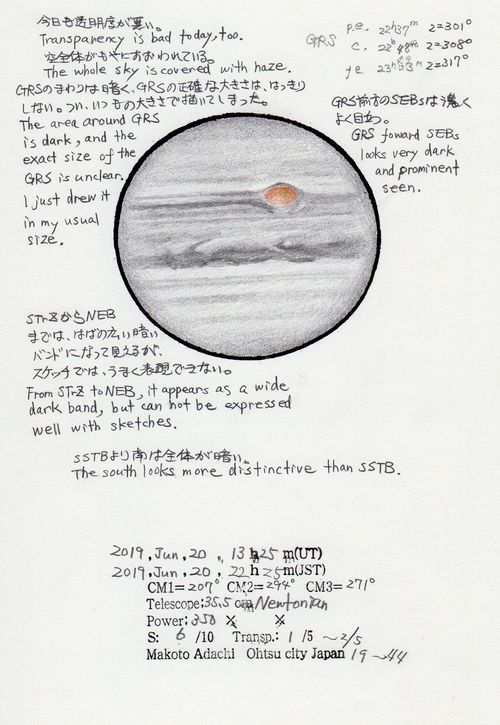 今日も透明度が悪い。
Transparency is bad today, too.
空全体がもやにおおわれている。
The whole sky is covered with haze.
GRS p.e. 22h37m 2=301°
c. 22h48m 2=308°
f.e 23h03m 2=317°
GRSのまわりは暗く、GRSの正確な大きさは、はっきり
しない。つい、いつもの大きさで描いてしまった。
The area around GRS
is dark, and the
exact size of the
GRS is unclear.
I just drew it
in my usual
size.
GRS前方のSEBsは濃く
よく目立つ。
GRS foward SEBs
looks very dark
and prominent
seen.
STrZからNEB
までは、はばの広い暗い
バンドになって見えるが、
スケッチでは、うまく表現できない。
From STrZ to NEB, it appears as a wide
dark band, but can not be expressed
well with sketches.
SSTBより南は全体が暗い。
The south looks more distinctive than SSTB.
2019, Jun, 20, 13 h 25 m(UT)
2019, Jun, 20, 22 h 25 m(JST)
CM1=207° CM2=294° CM3=271°
Telescope:35.5 cm Newtonian
Power:350 × ×
S: 6 /10 Transp.: 1 /5 ~2/5
Makoto Adachi Ohtsu city Japan 19~44